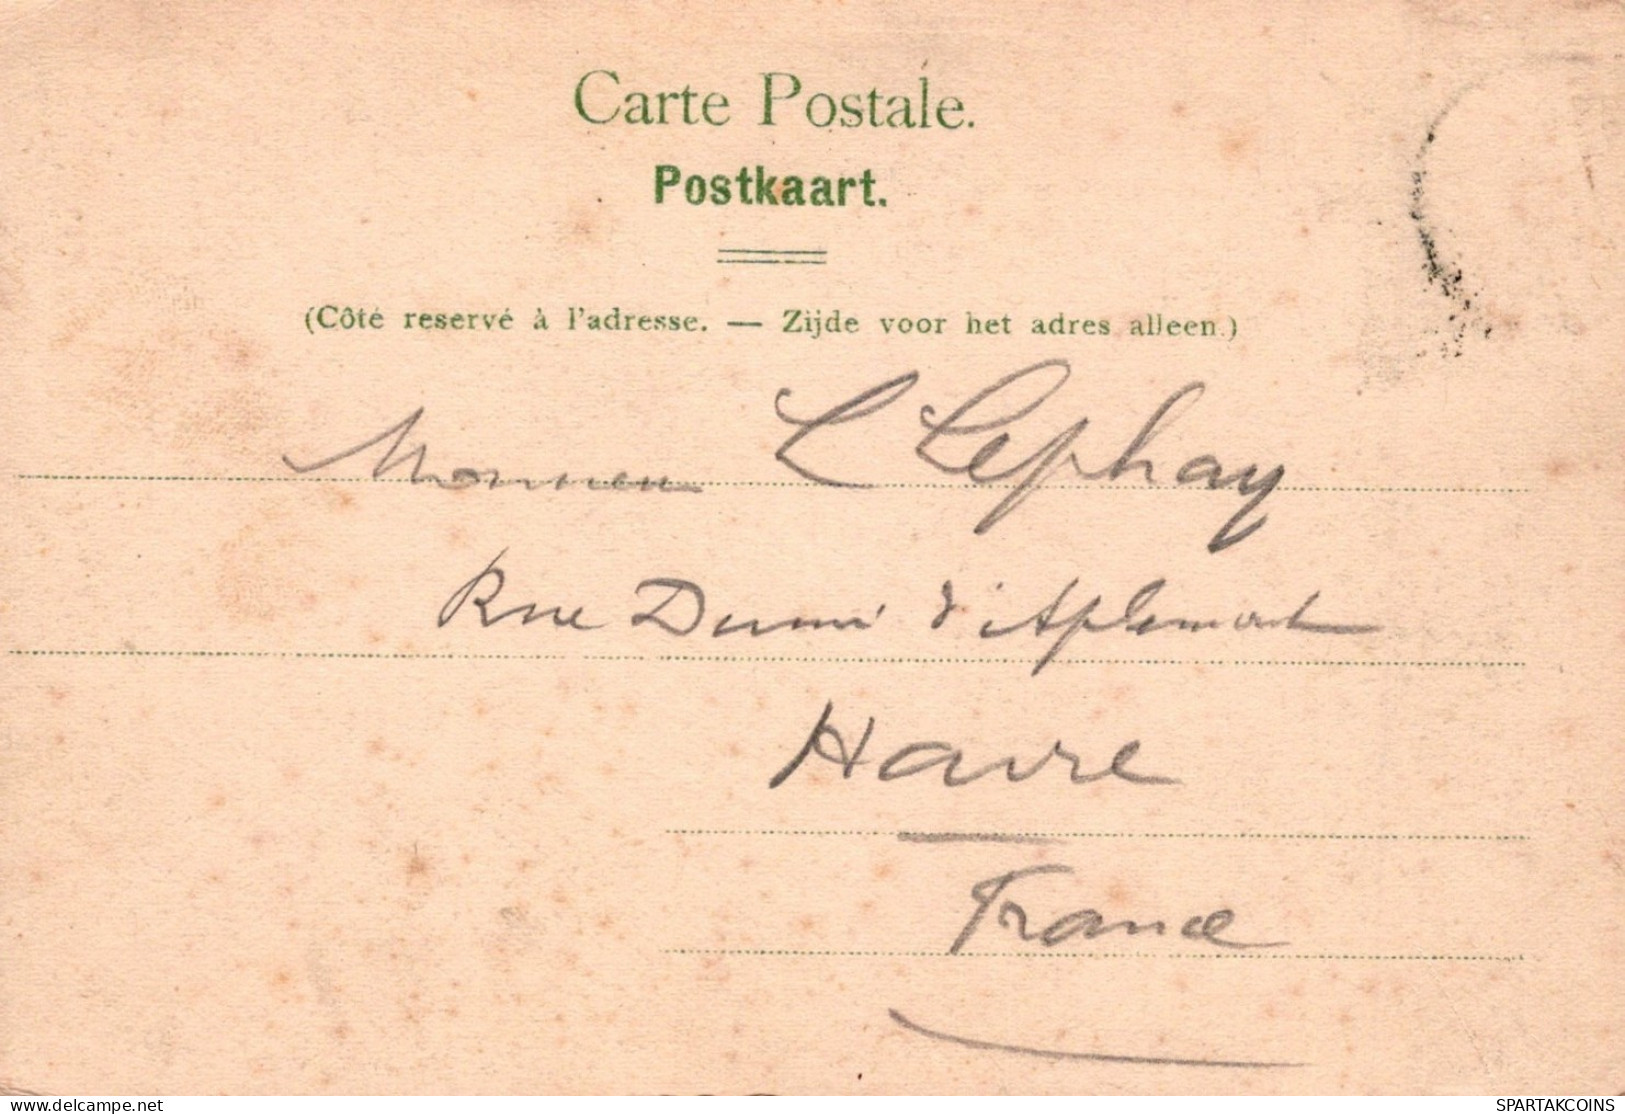 Carte Postale.
Postkaart.
(Côté reservé à l'adresse. — Zijde voor het adres alleen.)
Monsieur L Lephay
Rue Dumé d'Aplemont
Havre
France
delcampe.net
SPARTAKCOINS